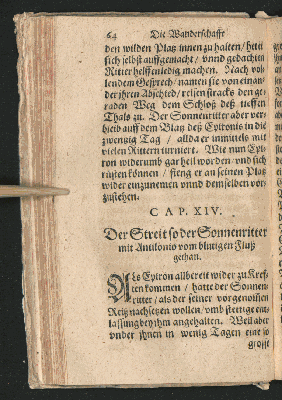 64 Die Wanderschafft
den wilden Platz innen zu halten / hette
sich selbst auffgemacht / vnnd gedachten
Ritter helffen ledig machen. Nach vol-
lendem Gesprech / namen sie von einan-
der jhren Abschied / reisen stracks den ge-
raden Weg dem Schloß deß tieffen
Thals zu. Der Sonnenritter aber ver-
bleib auff dem Platz deß Cytronis in die
zwentzig Tag / allda er inmittels mit
vielen Rittern turniert. Wie nun Cyt-
ron widerumb gar heil worden / vnd sich
rüsten können / fieng er an seinen Platz
wider einzunemen vnnd dem selben vor-
zustehen.
CAP. XIV.
Der Streit so der Sonnenritter
mit Antilonio vom blutigen Fluß
gethan.
Als Cytron allbereit wider zu Kreff-
ten kommen / hatte der Sonnen-
ritter / als der seiner vorgenomnen
Reiß nachsetzen wollen / vmb steetige ent-
lassung bey jhm angehalten. Weil aber
vnder jhnen in wenig Tagen eine so
grosse